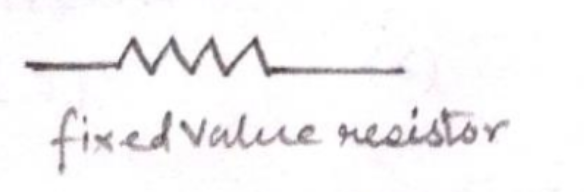 fixed value resistor